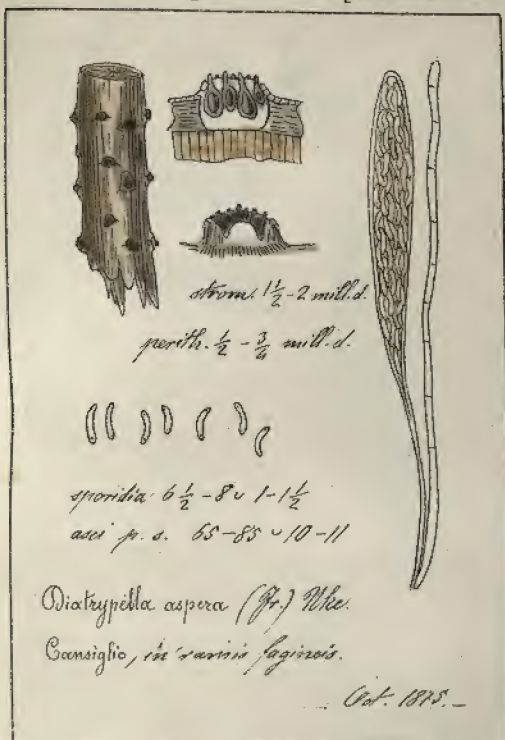 strom. 1 1/2 - 2 mill. d.
perith. 1/2 - 3/4 mill. d.
sporidia 6 1/2 - 8 ᴗ 1 - 1 1/2
asci p. s. 65 - 85 ᴗ 10 - 11
Diatrypella aspera (Fr.) Nke.
Cansiglio, in ramis fagineis.
Oct. 1875. -